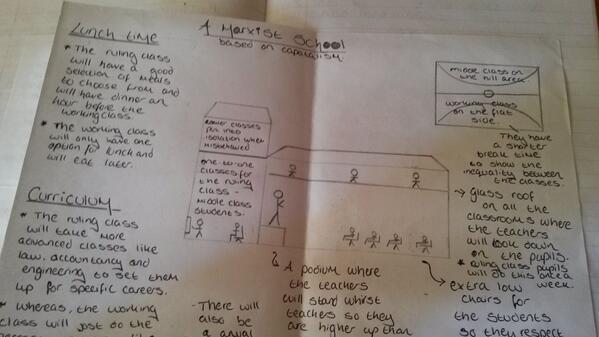 A Marxist School
based on capatalism.
Lunch time
* The ruling class
will have a good
selection of meals
to choose from and
will have dinner an
hour before the
working class.
* The working class
will only have one
option for lunch and
will eat later.
Curriculum
* The ruling class
will take more
advanced classes like
law, accountancy and
engineering to set them
up for specific careers.
* whereas, the working
class will just do the
lower classes
put into
isolation when
misbehaved
one-to-one
classes for
the ruling
class -
middle class
students.
- There will
also be
a
A podium where
the teachers
will stand whilst
teachers so they
are higher up than
middle class on
the hill area
working class
on the flat
side.
They have
a shorter
break time
to show the
inequality between
the classes.
glass roof
on all the
classrooms where
the teachers
will look down
on the pupils.
* ruling class pupils
will do this once a
week.
extra low
chairs for
the students
so they respect